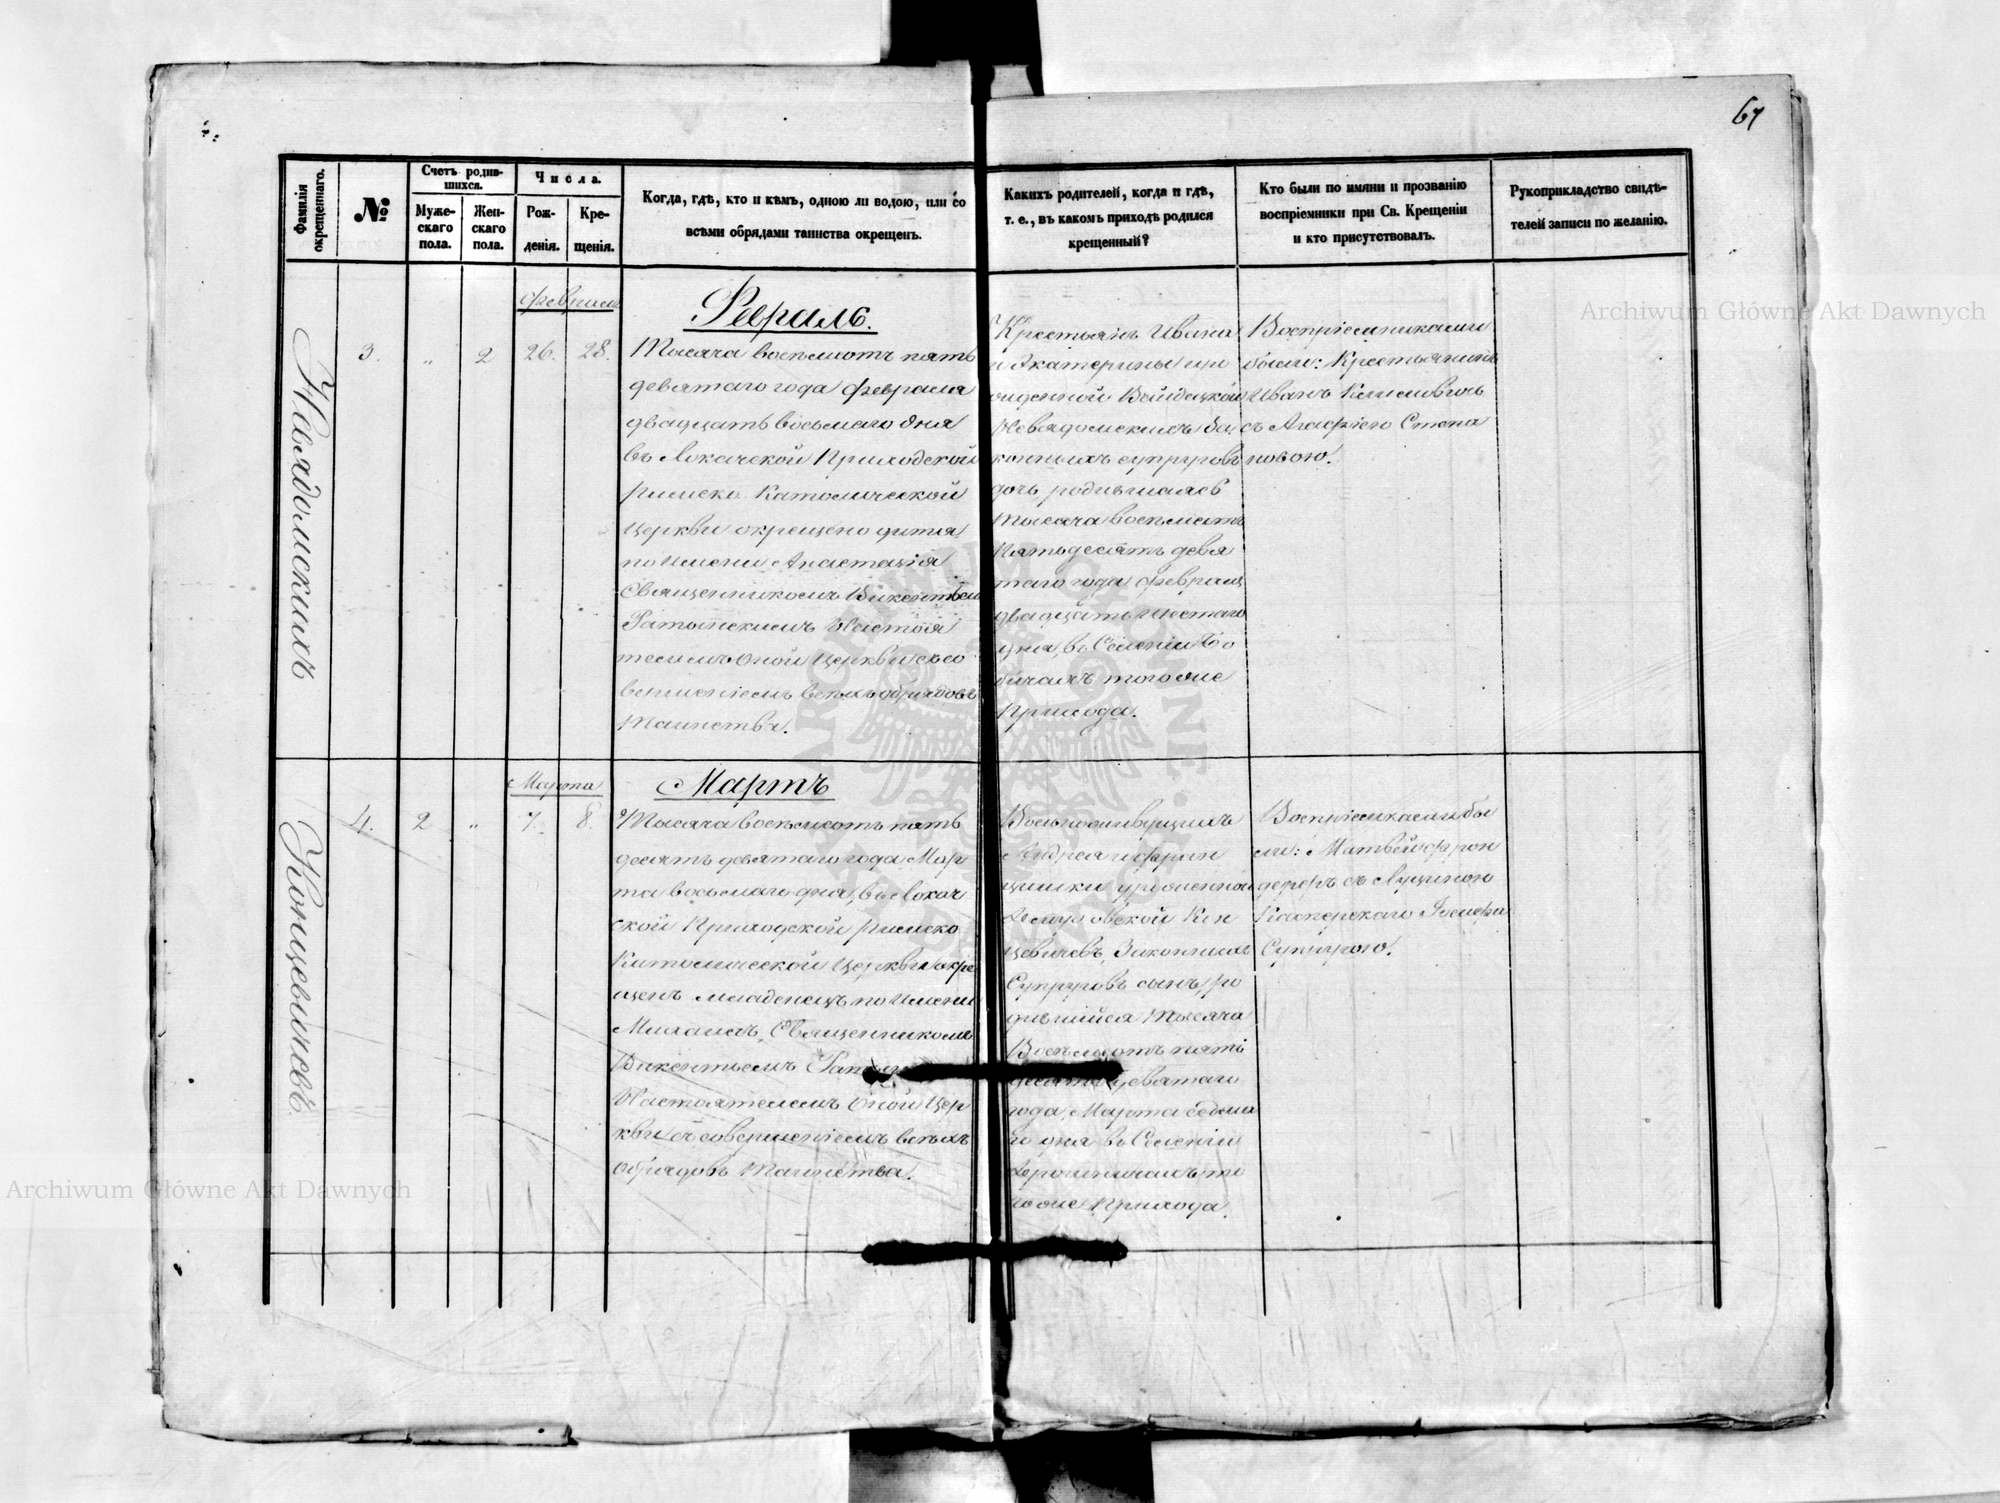 67
Фамилія окрещеннаго.
№
Счетъ родившихся.
Мужескаго пола.
Женскаго пола.
Числа.
Рожденія.
Крещенія.
Когда, гдѣ, кто и кѣмъ, одною ли водою, или со
всѣми обрядами таинства окрещенъ.
Какихъ родителей, когда и гдѣ,
т. е., въ какомъ приходѣ родился
крещенный?
Кто были по имяни и прозванію
воспріемники при Св. Крещеніи
и кто присутствовалъ.
Рукоприкладство свидѣ-
телей записи по желанію.
Невядомскихъ
3. " 2 26. 28.
Февраля
Февраль.
Тысяча восемьсотъ пять
девятаго года Февраля
двадцать восьмаго дня
въ Локачской Приходской
Римско Католической
Церкви окрещено дитя
по имени Анастація
Священникомъ Викентьем
Настоя
телемъ оной Церкви съ со
вершеніемъ всѣхъ обрядовъ
Таинства.
Крестьянъ Ивана
и Екатерины
Невядомскихъ за
конныхъ супруговъ
дочь родившаяся
тысяча восемьсотъ
пятьдесятъ девя
таго года Февраля
двадцать шестаго
дня, въ Селеніи
того же
Прихода.
Воспріемниками
были: Крестьянинъ
Иванъ Климовичъ
съ Агафіею Степа
новою.
Концевичевъ.
4. 2 " 7. 8.
Марта
Мартъ
Тысяча восемьсотъ пять
десятъ девятаго года Мар
та восьмаго дня, въ Локач
ской Приходской Римско
Католической Церкви окре
щенъ младенецъ по имени
Михаилъ, Священникомъ
Викентьемъ
Настоятелемъ оной Цер
кви съ совершеніемъ всѣхъ
обрядовъ Таинства.
Андрея и Фран
цишки урожденной
Кон
цевичевъ, Законныхъ
Супруговъ сынъ, ро
дившійся тысяча
восемьсотъ пять
десятъ девятаго
года, Марта седьма
го дня въ Селеніи
то
гоже Прихода.
Воспріемниками бы
ли: Матвей
съ
Іосифа
Супругою.
Archiwum Główne Akt Dawnych
Archiwum Główne Akt Dawnych
ARCHIWUM GŁÓWNE AKT DAWNYCH